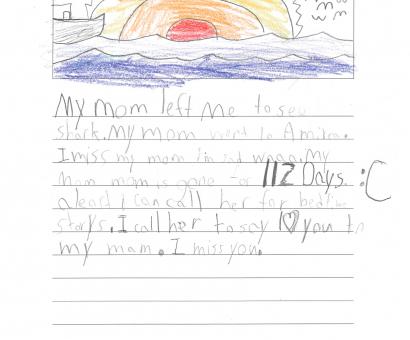 My mom left me to see
shark. My mom went to Amira.
I miss my mom I'm sad wnan. My
mom mom is gone for 112 Days. :C
aleast i can call her for bedtime
storys. I call her to say I ♡ you to
my mam. I miss you.